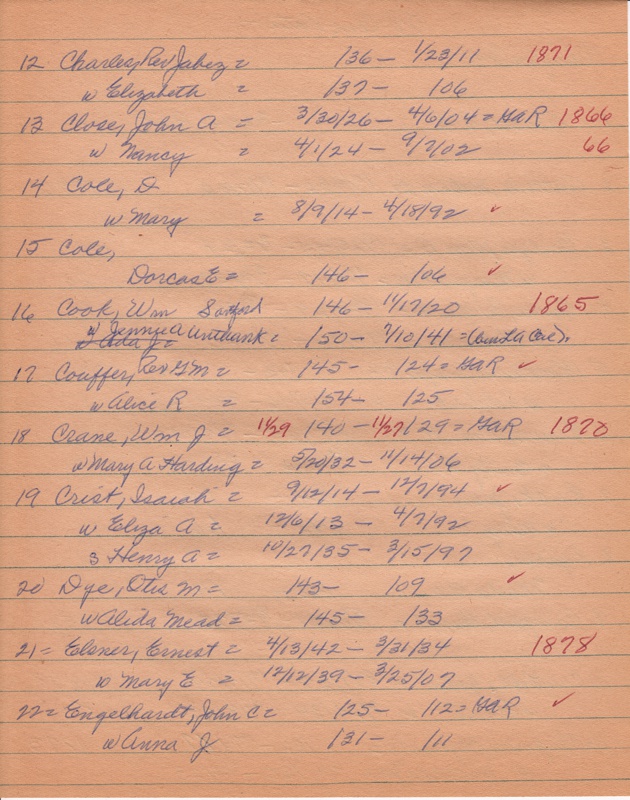 12 Charles, Rev Jabez = 136 — 1/23/11 1871
w Elizabeth = 137 — 106
13 Close, John A = 3/30/26 — 4/6/04 = GAR 1866
w Nancy = 4/1/24 — 9/7/02 66
14 Cole, D
w Mary = 8/9/14 — 4/18/92 ✓
15 Cole,
Dorcas E = 146 — 106 ✓
16 Cook, Wm Sanford 146 — 11/17/20 1865
w Jennie A Unthank = 150 — 7/10/41 =
17 Couffer, Rev G M = 145 - 124 = GAR ✓
w Alice R = 154 — 125
18 Crane, Wm J = 11/29 140 — 11/27/29 = GAR 1870
w Mary A Harding = 5/20/32 — 11/14/06
19 Crist, Isaiah = 9/12/14 — 12/7/94 ✓
w Eliza A = 12/6/13 — 4/7/92
3 Henry A = 10/27/35 — 3/15/97
20 Dye, Otis M = 143 — 109 ✓
w Alida Mead = 145 — 133
21 = Elsner, Ernest = 4/13/42 — 3/31/34 1878
w Mary E = 12/12/39 — 3/25/07
22 = Engelhardt, John C = 125 — 112 = GAR ✓
w Anna J. 131 — 111